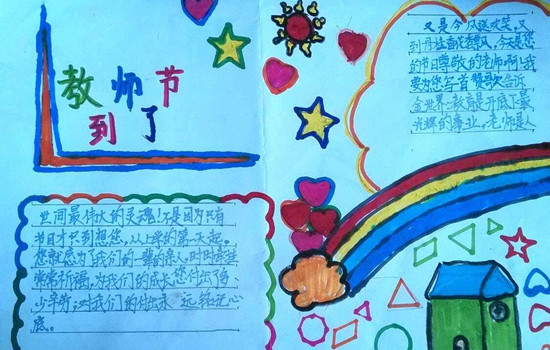 教师节
到了
又是今风送欢笑,又
到丹桂飘香碧风,今天是您
的节日尊敬的老师啊!我
要为您写首赞歌告诉
全世界:教育是天底下最
光辉的事业,老师是人
世间最伟大的灵魂!不是因为只有
节日才想到想您,从上学的第一天起,
您就成为了我们的一辈的亲人,时时牵挂
常常祈福,为我们的成长您付出了多
少辛劳,对我们的付出永远铭记心
底。